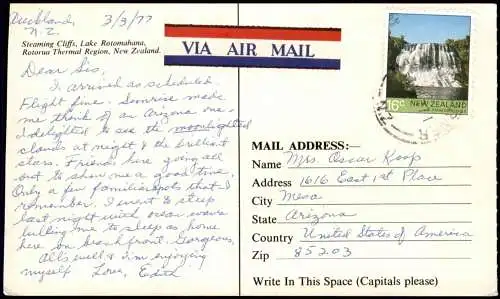 Auckland, 3/3/77
N.Z.
Steaming Cliffs, Lake Rotomahana,
Rotorua Thermal Region, New Zealand.
VIA AIR MAIL
16c NEW ZEALAND
Dear Sis,
I arrived as scheduled.
Flight fine. Sunrise made
me think of an Arizona one.
I delighted to see the moonlighted
clouds at night & the brilliant
stars. Friends here going all
out to show me a good time.
Only a few familiar spots that I
remember. I went to sleep
last night with ocean waves
lulling me to sleep as home
here on beachfront. Gorgeous,
All's well & I'm enjoying
myself Love, Edith
MAIL ADDRESS:—
Name Mrs. Oscar Koop
Address 1616 East 1st Place
City Mesa
State Arizona
Country United States of America
Zip 85203
Write In This Space (Capitals please)